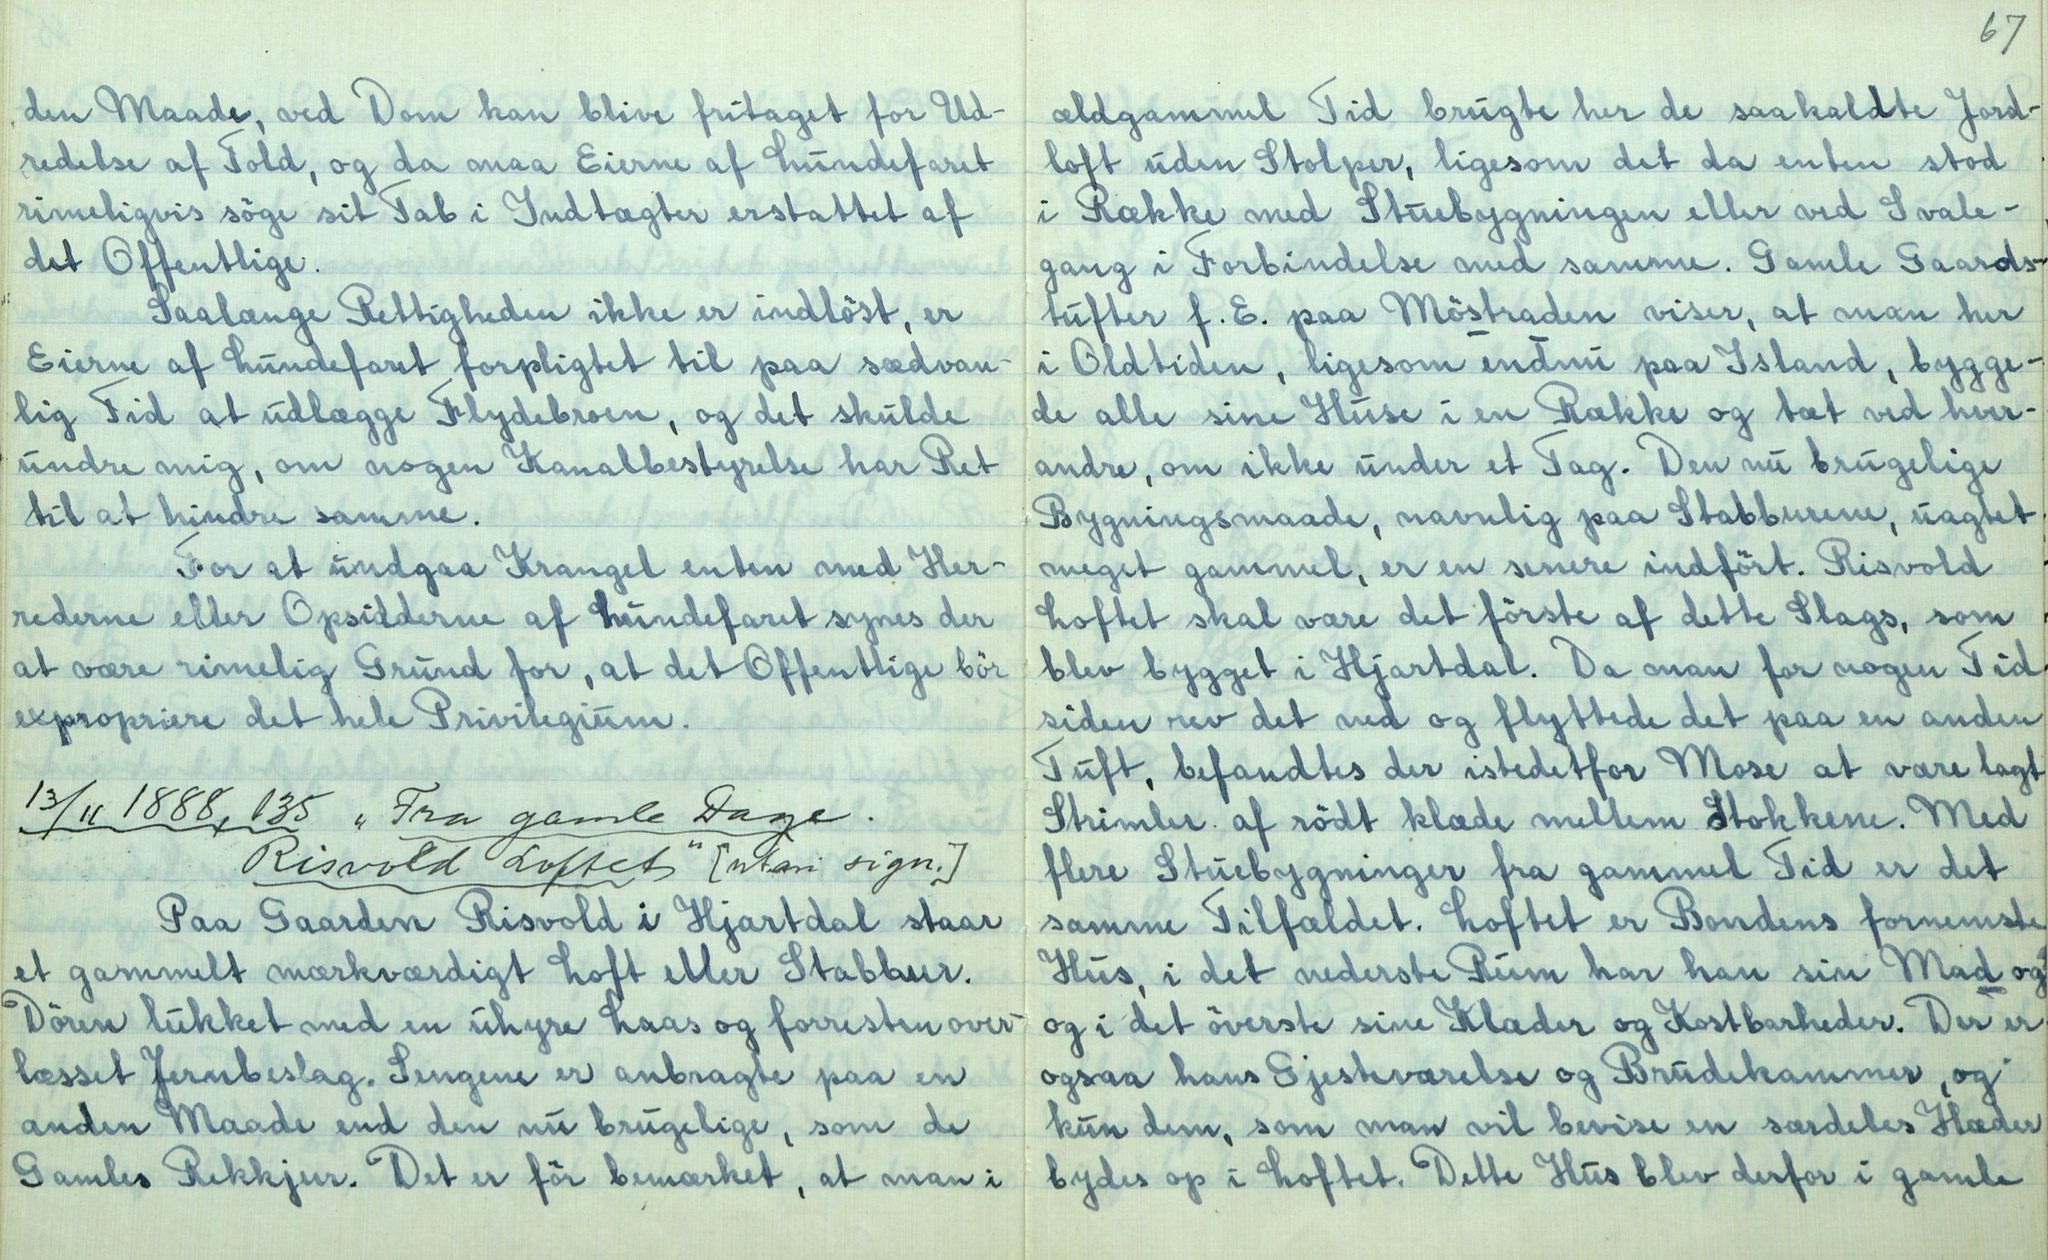 den Maade, ved Dom kan blive fritaget for Ud-
redelse af Told, og da maa Eierne af Lundefaret
rimeligvis söge sit Tab i Indtægter erstattet af
det Offentlige.
Saalænge Rettigheden ikke er indlöst, er
Eierne af Lundefaret forpligtet til paa sædvan-
lig Tid at udlægge Flydebroen, og det skulde
undre mig, om nogen Kanalbestyrelse har Ret
til at hindre samme.
For at undgaa Krangel enten med Her-
rederne eller Opsidderne af Lundefaret synes der
at være rimelig Grund for, at det Offentlige bör
expropriere det hele Privilegium.
13/11 1888, 135 „Fra gamle Dage.
Risvold Loftet" [utan sign.]
Paa Gaarden Risvold i Hjartdal staar
et gammelt mærkværdigt Loft eller Stabbur.
Dören lukket med en uhyre Laas og forresten over-
læsset Jernbeslag. Sengene er anbragte paa en
anden Maade end den nu brugelige, som de
Gamles Rekkjur. Det er för bemærket, at man i
67
ældgammel Tid brugte her de saakaldte Jord-
loft uden Stolper, ligesom det da enten stod
i Række med Stuebygningen eller ved Svale-
gang i Forbindelse med samme. Gamle Gaards-
tufter f. E. paa Möstraden viser, at man her
i Oldtiden, ligesom endnu paa Island, bygge-
de alle sine Huse i en Række og tæt ved hver-
andre, om ikke under et Tag. Den nu brugelige
Bygningsmaade, navnlig paa Stabburene, uagtet
meget gammel, er en senere indfört. Risvold
Loftet skal være det förste af dette Slags, som
blev bygget i Hjartdal. Da man for nogen Tid
siden rev det ned og flyttede det paa en anden
Tuft, befandtes der istedetfor Mose at være lagt
Strimler af rödt klæde mellem Stokkene. Med
flere Stuebygninger fra gammel Tid er det
samme Tilfældet. Loftet er Bondens fornemste
Hus, i det nederste Rum har han sin Mad og
og i det överste sine Klæder og Kostbarheder. Der er
ogsaa hans Gjesteværelse og Brudekammer, og
kun dem, som man vil bevise en særdeles Hæder
bydes op i Loftet. Dette Hus blev derfor i gamle